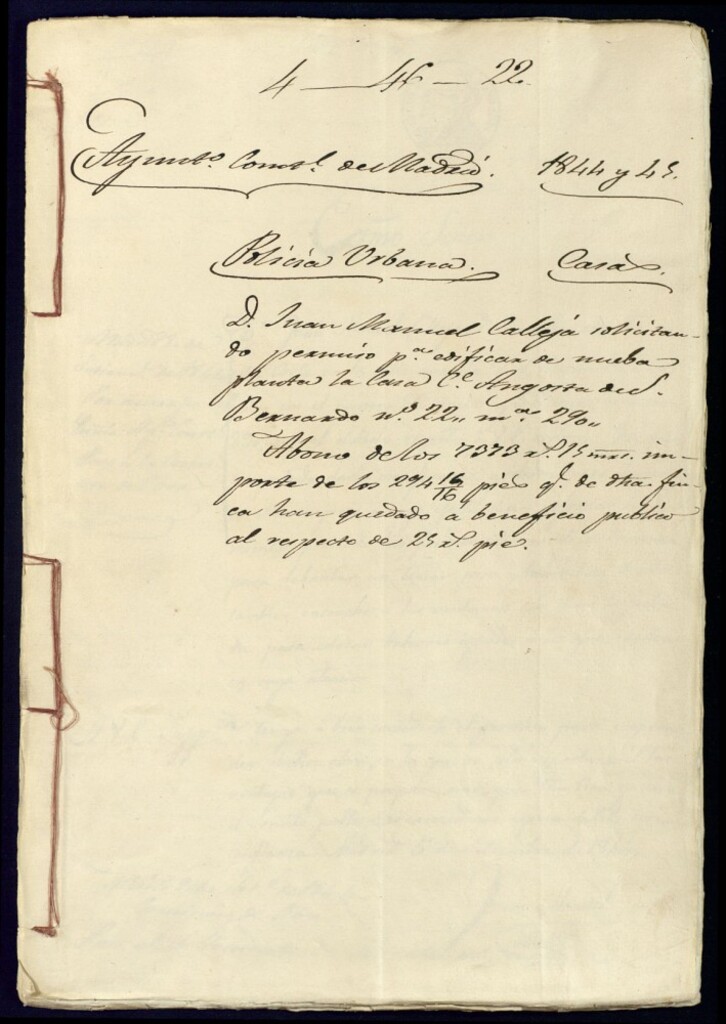 4 — 45 — 22.
Ayunto. Constl. de Madrid. 1844 y 45.
Policia Urbana. Casas.
D. Juan Manuel Calleja solicitan-
do permiso pa. edificar de nueba
planta la Casa Ce. Angosta de S.
Bernardo no. 22,, mna. 290,,
Abono de los 7373 rs. 15 mrs. im-
porte de los 294 16/16 pies qe. de dha. fin-
ca han quedado á beneficio publico
al respecto de 25 rs. pie.